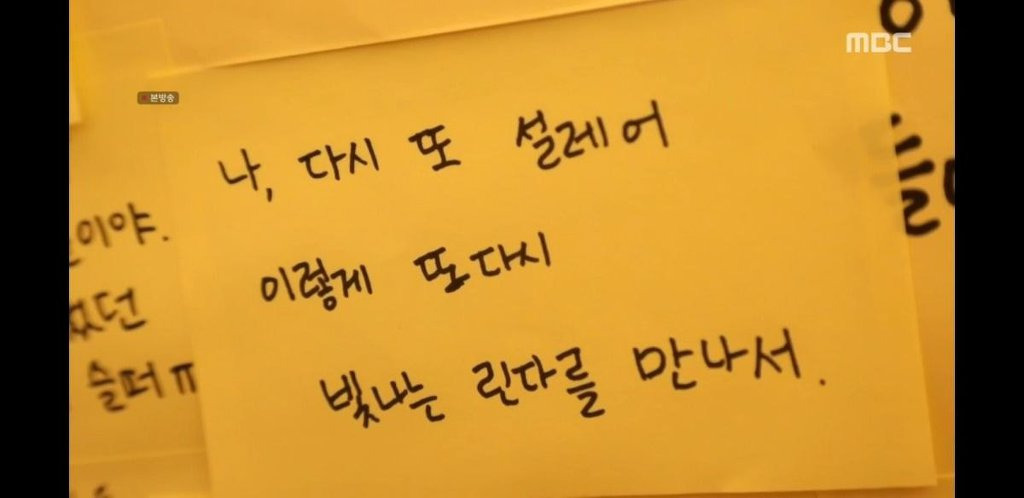 MBC
본방송
나, 다시 또 설레어
이렇게 또다시
빛나는 린다를 만나서.
이야.
던
슬퍼 ㅠ